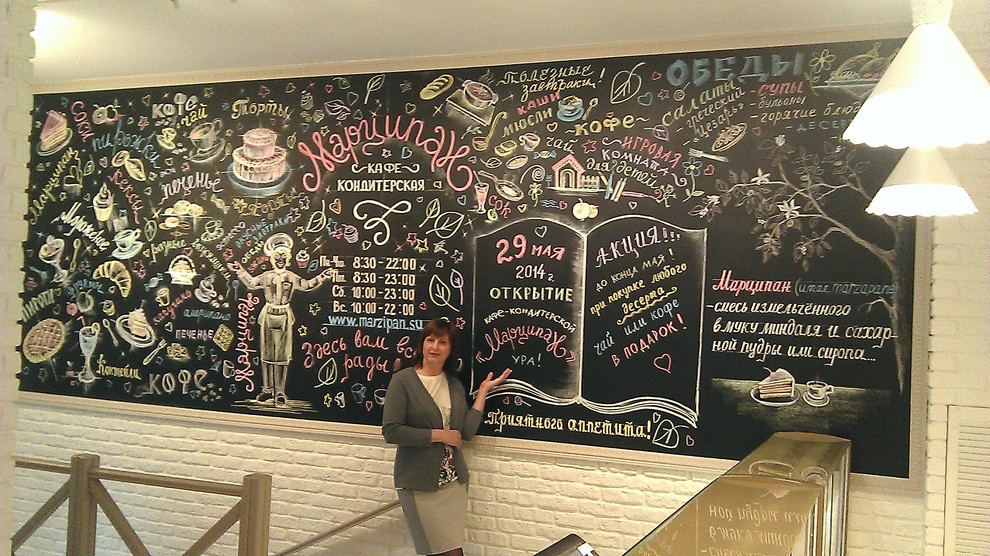 Соки
Марципан
пирожки
кексы
кофе
чай
Торты
печенье
Мороженое
Марципан
КАФЕ
КОНДИТЕРСКАЯ
Пн.-Чт. 8:30-22:00
8:30-23:00
Сб. 10:00-23:00
Вс. 10:00-22:00
www.marzipan.su
Здесь вам
рады
Марципан
американо
ПЕЧЕНЬЕ
Коктейли
КОФЕ
Полезные
завтраки!
КАШИ
МЮСЛИ
~КОФЕ~
чай
СОК
ИГРОВАЯ
КОМНАТА
для детей
ОБЕДЫ
САЛАТЫ
-греческий
-цезарь
СУПЫ
-бульоны
-горячие блюда
ДЕСЕРТ
29 МАЯ
2014г.
ОТКРЫТИЕ
КАФЕ-КОНДИТЕРСКОЙ
"Марципан"
УРА!
АКЦИЯ!!!
ДО КОНЦА МАЯ!
при покупке любого
десерта
чай или кофе
В ПОДАРОК!
Приятного аппетита!
Марципан (итал. marzapane)
-смесь измельчённого
в муку миндаля и сахар-
ной пудры или сиропа...